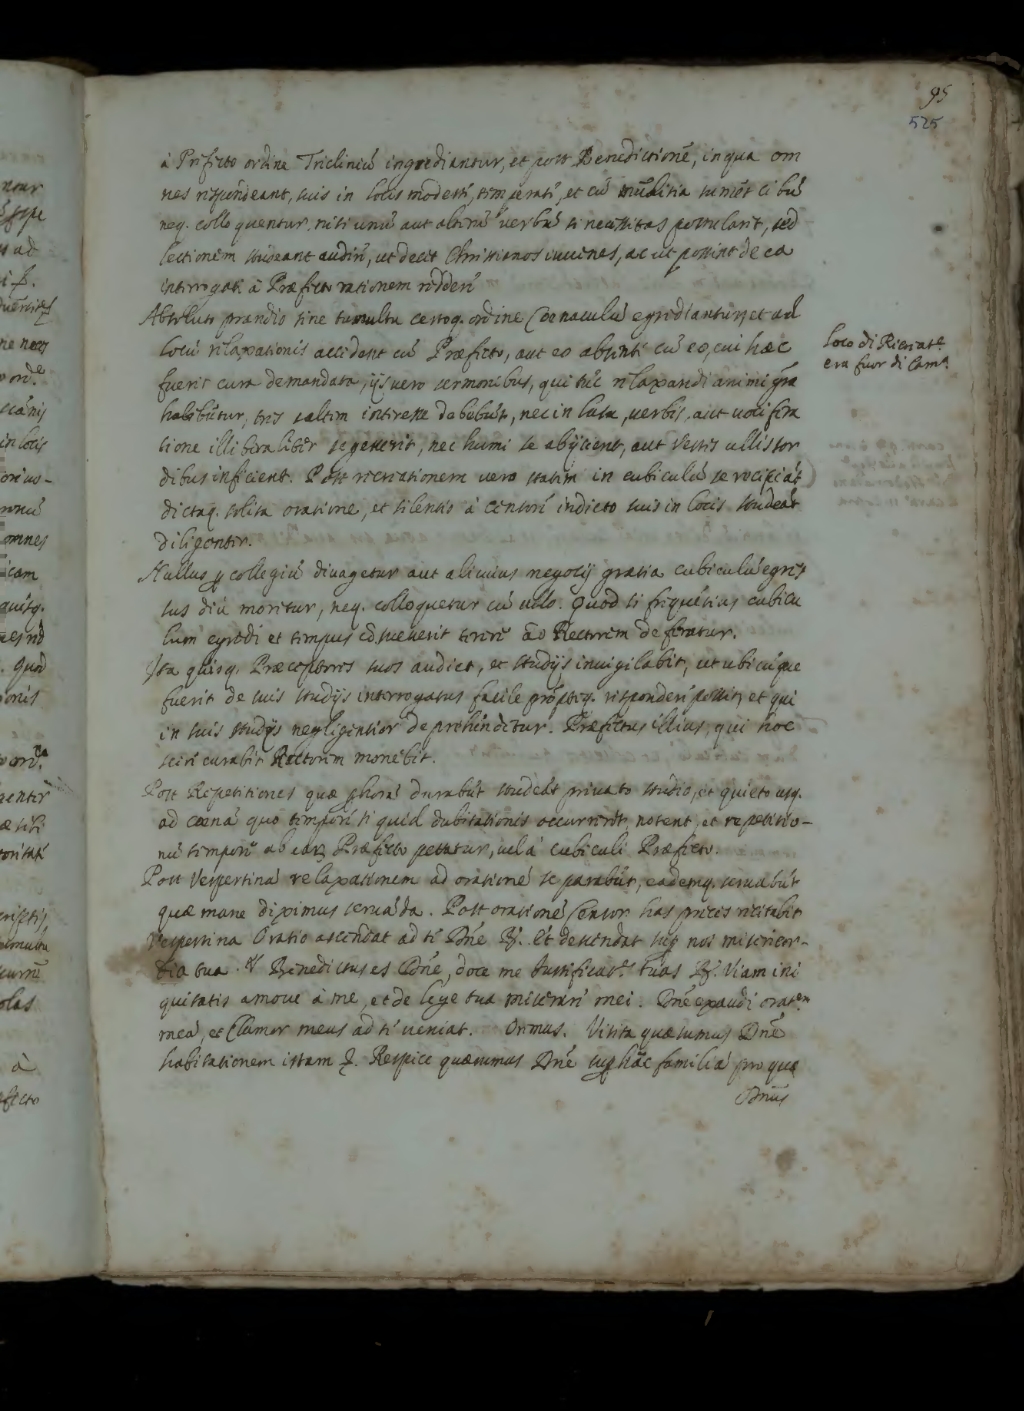 95
525
à Præfecto ordine Tricliniũ ingrediantur, et post Benedictionẽ, in qua om
nes respondeant, suis in locis modestè, temperatè, et cũ munditia sumẽt cibũ
neq. colloquentur nisi unũ aut alterũ verbũ si necessitas postularit, sed
lectionem studeant audire, ut decet Christianos iuuenes, ac ut possint de ea
interrogati à Præfecto rationem reddere
Absoluto prandio sine tumultu certoq. ordine Cœnaculũ egrediantur, et ad
locũ relaxationis accedent cũ Præfecto, aut eo absente cũ eo, cui hæc
fuerit cura demandata, ijs vero sermonibus, qui tũc relaxandi animi gr̃a
habebũtur, tres saltem interesse debebũt, nec in lusu, verbis, aut uociferа
tione illiberaliter se gesserit, nec humi se abijcient, aut vestes ullis sor
dibus inficient. Post recreationem vero statim in cubiculũ se recipiãt
dictaq. solita oratione, et silentio à censore indicto suis in locis studeãt
diligenter.
Nullus p collegiũ diuagetur aut alicuius negotij gratia cubiculũ egres
sus diu moretur, neq. colloquetur cũ ullo. Quod si frequetius cubicu
lum egredi et tempus cõsueuerit terere ad Rectorem deferatur.
Ita quisq. Præceptores suos audiet, et studijs inuigilabit, ut ubicũque
fuerit de suis studijs interrogatus facile prõpteq. respondere possit, et qui
in suis studijs negligentior deprehẽdetur. Præfectus illius, qui hoc
scire curabit Rectorem monebit.
Post Repetitiones quæ p horã durabũt studebũt priuato studio, et quieto usq.
ad cœnã quo tempore si quid dubitationis occurrerit, notent, et repetitio-
nũ tempore ab earũ Præfecto petatur, uel à cubiculi Præfecto.
Post Vespertinã relaxationem ad orationẽ se parabũt, eademq. seruabũt
quæ mane diximus seruãda. Post orationẽ Censor has preces recitabit
Vespertina Oratio ascendat ad te Dñe ℟. Et descendat sup nos misericor-
dia tua. ℣ Benedictus es Dñe, doce me Iustificat.s tuas ℟. Viam ini
quitatis amoue à me, et de lege tua miserere mei. Dñe exaudi orat.em
meã, et Clamor meus ad te ueniat. Oremus. Visita quæsumus Dñe
habitationem istam &. Respice quæsumus Dñe sup hãc familiã pro qua
Dñus
Loco di Ricreat.e
era fuor di Cam.a